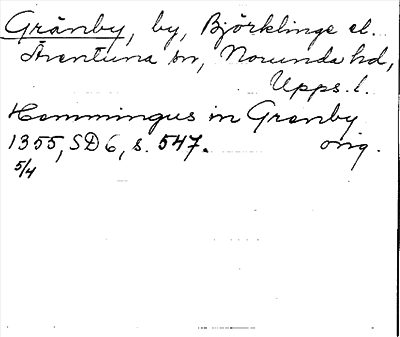 Gränby, by, Björklinge el.
Ärentuna sn, Norunda hd,
Upps. l.
Hemmingus in Grenby
1355, SD 6, s. 547. orig.
5/4